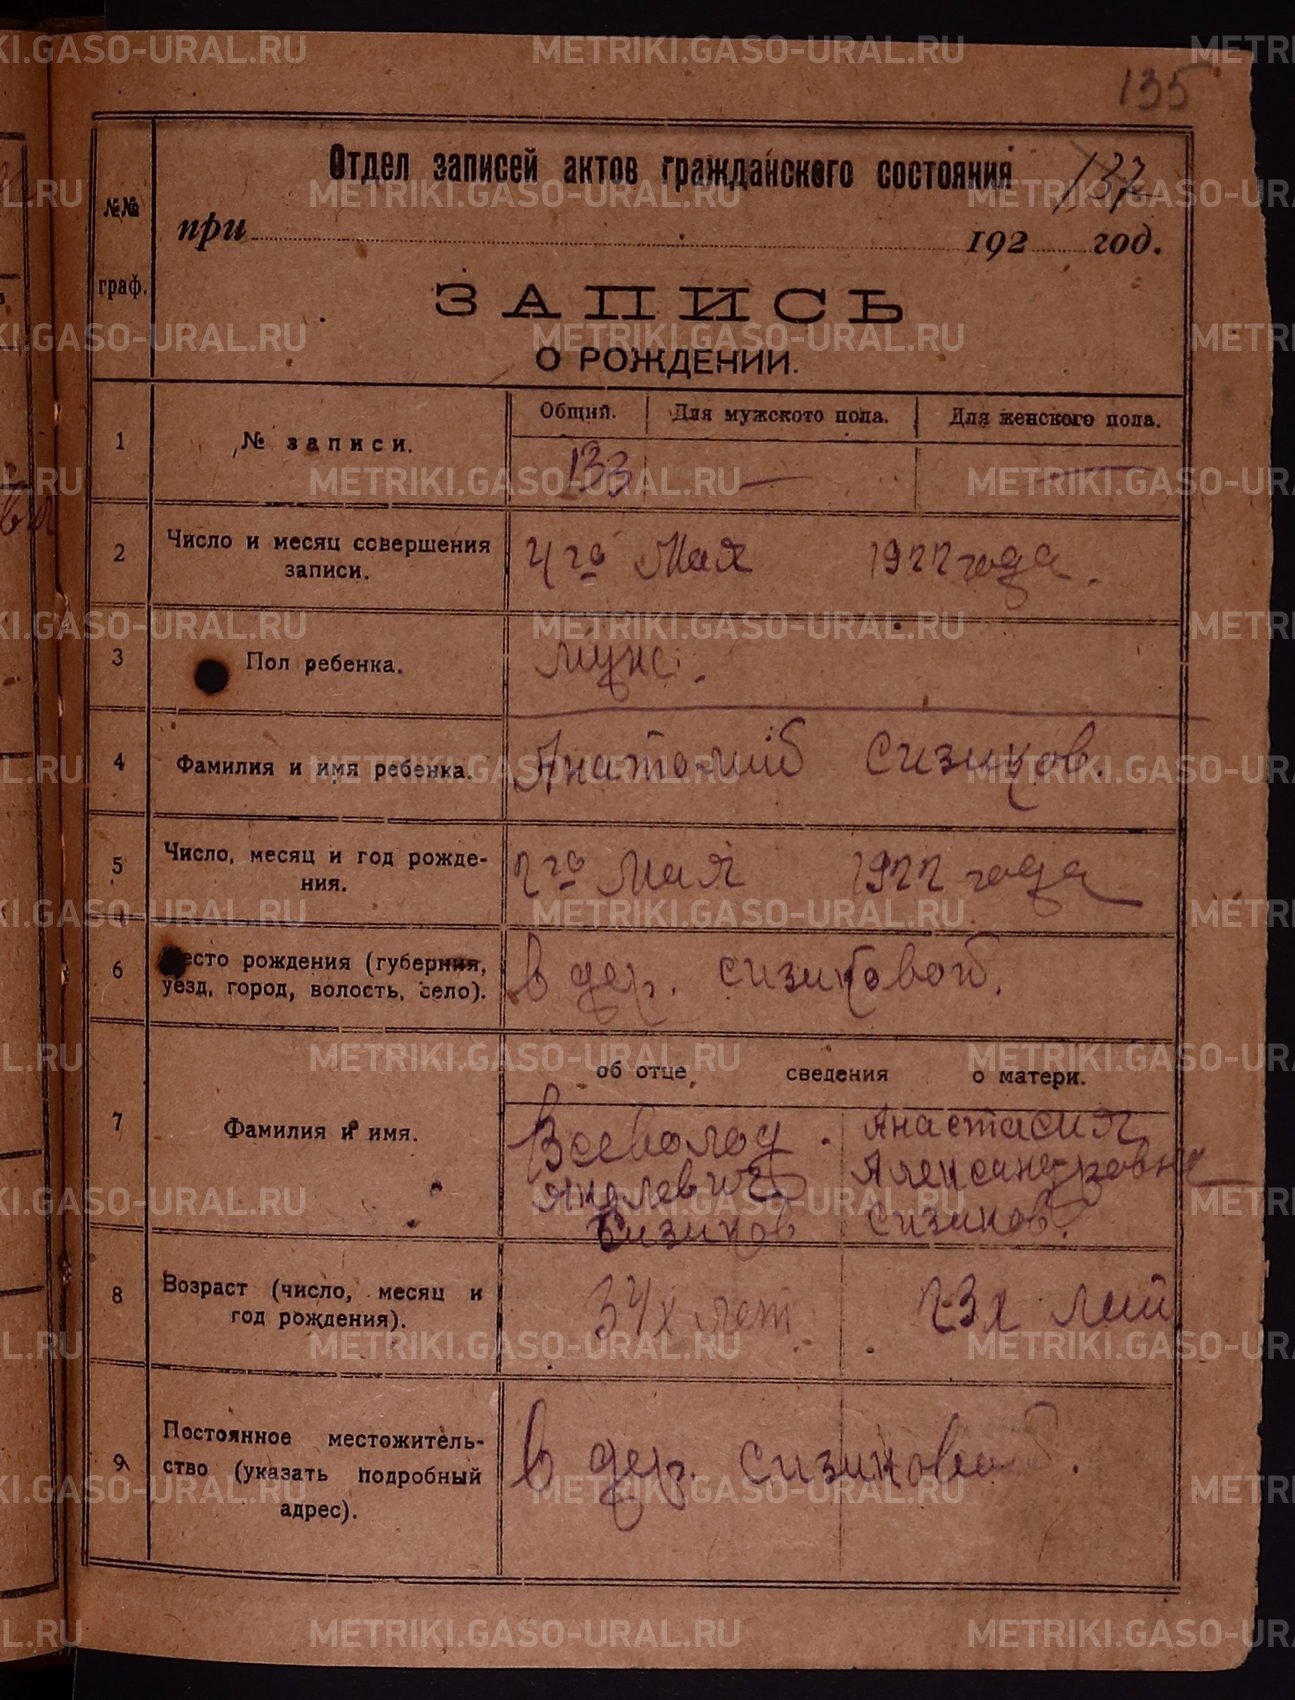 135
Отдел записей актов гражданского состояния 137
№№ граф.
при 192 год.
ЗАПИСЬ
О РОЖДЕНИИ.
1 № записи. Общий. Для мужского пола. Для женского пола.
133 — —
2 Число и месяц совершения записи. 4го Мая 1922 года.
3 Пол ребенка. муж.
4 Фамилия и имя ребенка. Анатолий Сизиков.
5 Число, месяц и год рожде-
ния. 2го Мая 1922 года
6 Место рождения (губерния,
уезд, город, волость, село). в дер. Сизиковой.
об отце, сведения о матери.
7 Фамилия и имя. Всеволод Анастасия
Александровна
Сизиков Сизиков.
8 Возраст (число, месяц и
год рождения). 34х лет 23х лет
9 Постоянное местожитель-
ство (указать подробный
адрес). в дер. Сизиковой.
METRIKI.GASO-URAL.RU